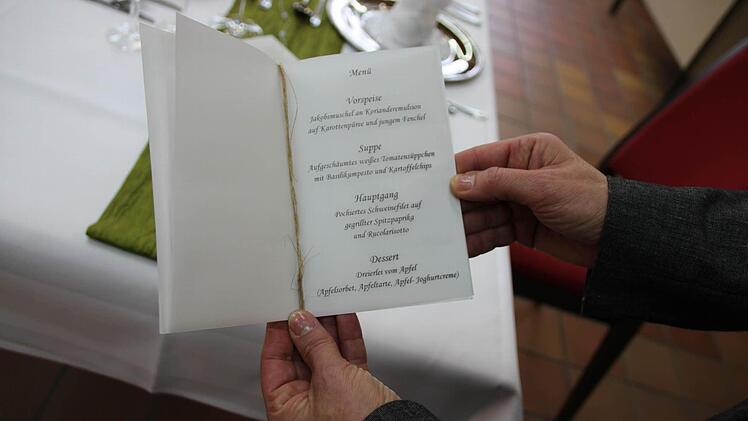 Menü
Vorspeise
Jakobsmuschel an Korianderemulsion
auf Karottenpüree und jungem Fenchel
Suppe
Aufgeschäumtes weißes Tomatensüppchen
mit Basilikumpesto und Kartoffelchips
Hauptgang
Pochiertes Schweinefilet auf
gegrillter Spitzpaprika
und Rucolarisotto
Dessert
Dreierlei vom Apfel
(Apfelsorbet, Apfeltarte, Apfel- Joghurtcreme)